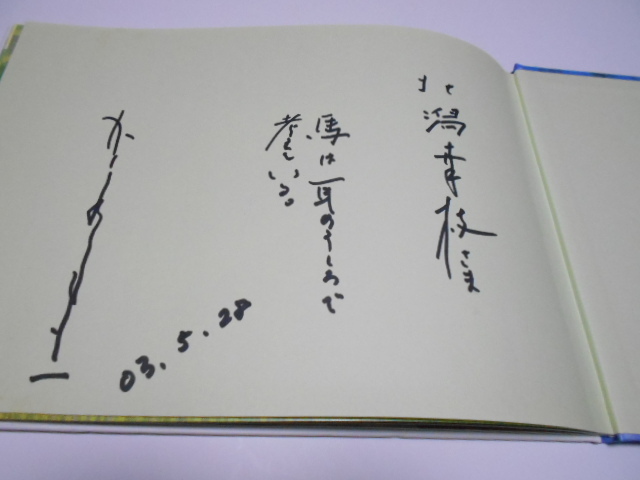 北潟幸枝さま
馬は耳のうしろで
考えている。
03.5.28